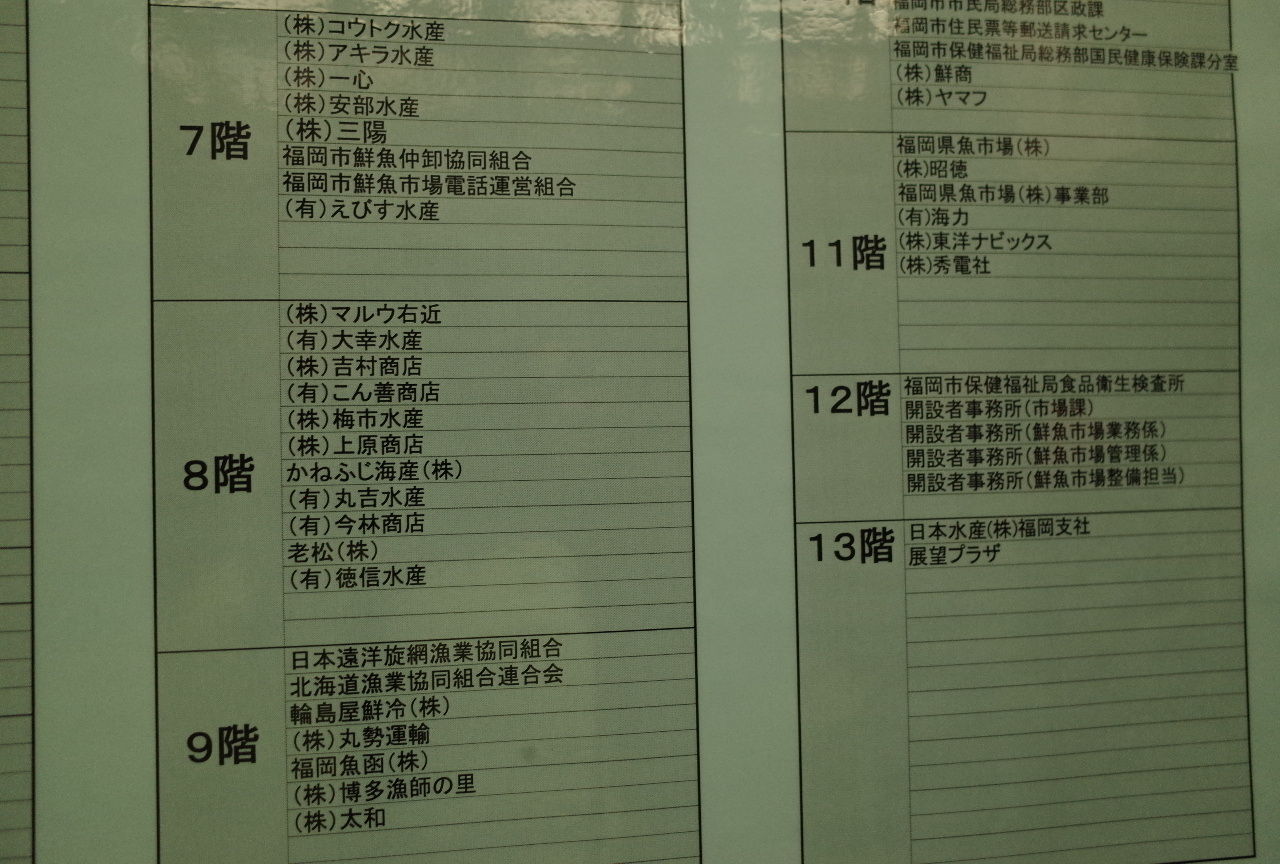 7階
(株)コウトク水産
(株)アキラ水産
(株)一心
(株)安部水産
(株)三陽
福岡市鮮魚仲卸協同組合
福岡市鮮魚市場電話運営組合
(有)えびす水産
8階
(株)マルウ右近
(有)大幸水産
(株)吉村商店
(有)こん善商店
(株)梅市水産
(株)上原商店
かねふじ海産(株)
(有)丸吉水産
(有)今林商店
老松(株)
(有)徳信水産
9階
日本遠洋旋網漁業協同組合
北海道漁業協同組合連合会
輪島屋鮮冷(株)
(株)丸勢運輸
福岡魚函(株)
(株)博多漁師の里
(株)太和
福岡市市民局総務部区政課
福岡市住民票等郵送請求センター
福岡市保健福祉局総務部国民健康保険課分室
(株)鮮商
(株)ヤマフ
11階
福岡県魚市場(株)
(株)昭徳
福岡県魚市場(株)事業部
(有)海力
(株)東洋ナビックス
(株)秀電社
12階
福岡市保健福祉局食品衛生検査所
開設者事務所(市場課)
開設者事務所(鮮魚市場業務係)
開設者事務所(鮮魚市場管理係)
開設者事務所(鮮魚市場整備担当)
13階
日本水産(株)福岡支社
展望プラザ